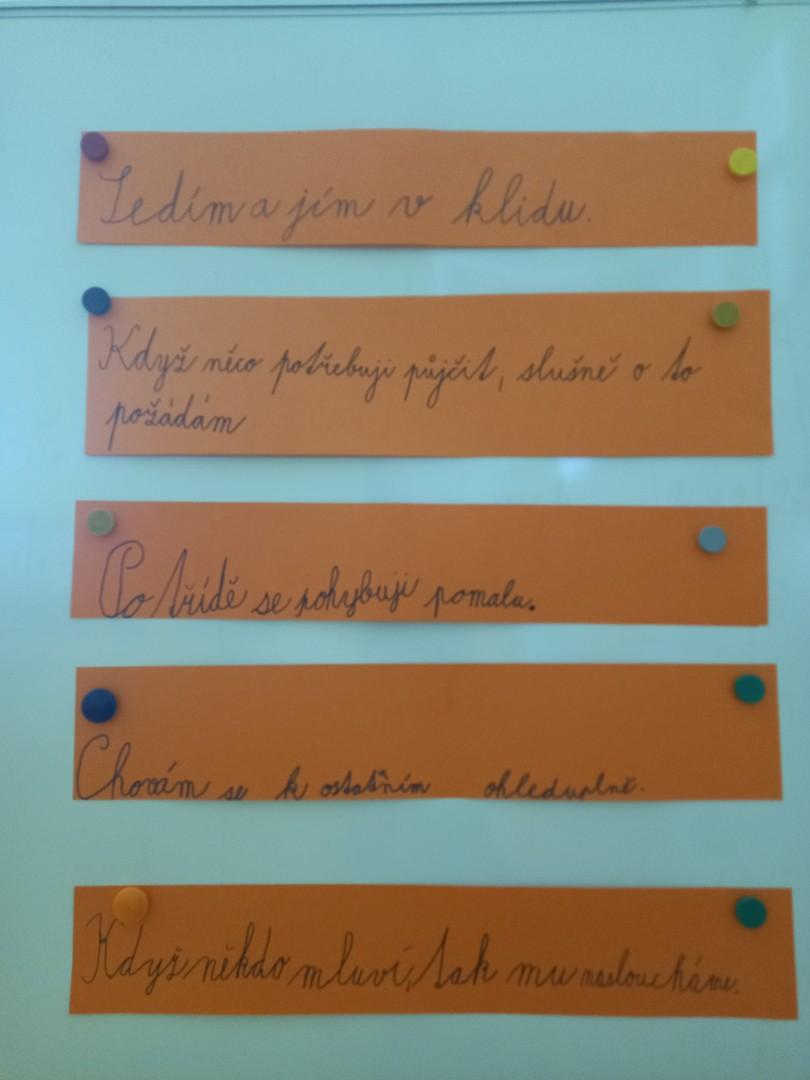 Sedím a jím v klidu.
Když něco potřebuji půjčit, slušně o to
požádám
Po třídě se pohybuji pomalu.
Chovám se k ostatním ohleduplně.
Když někdo mluví, tak mu nasloucháme.